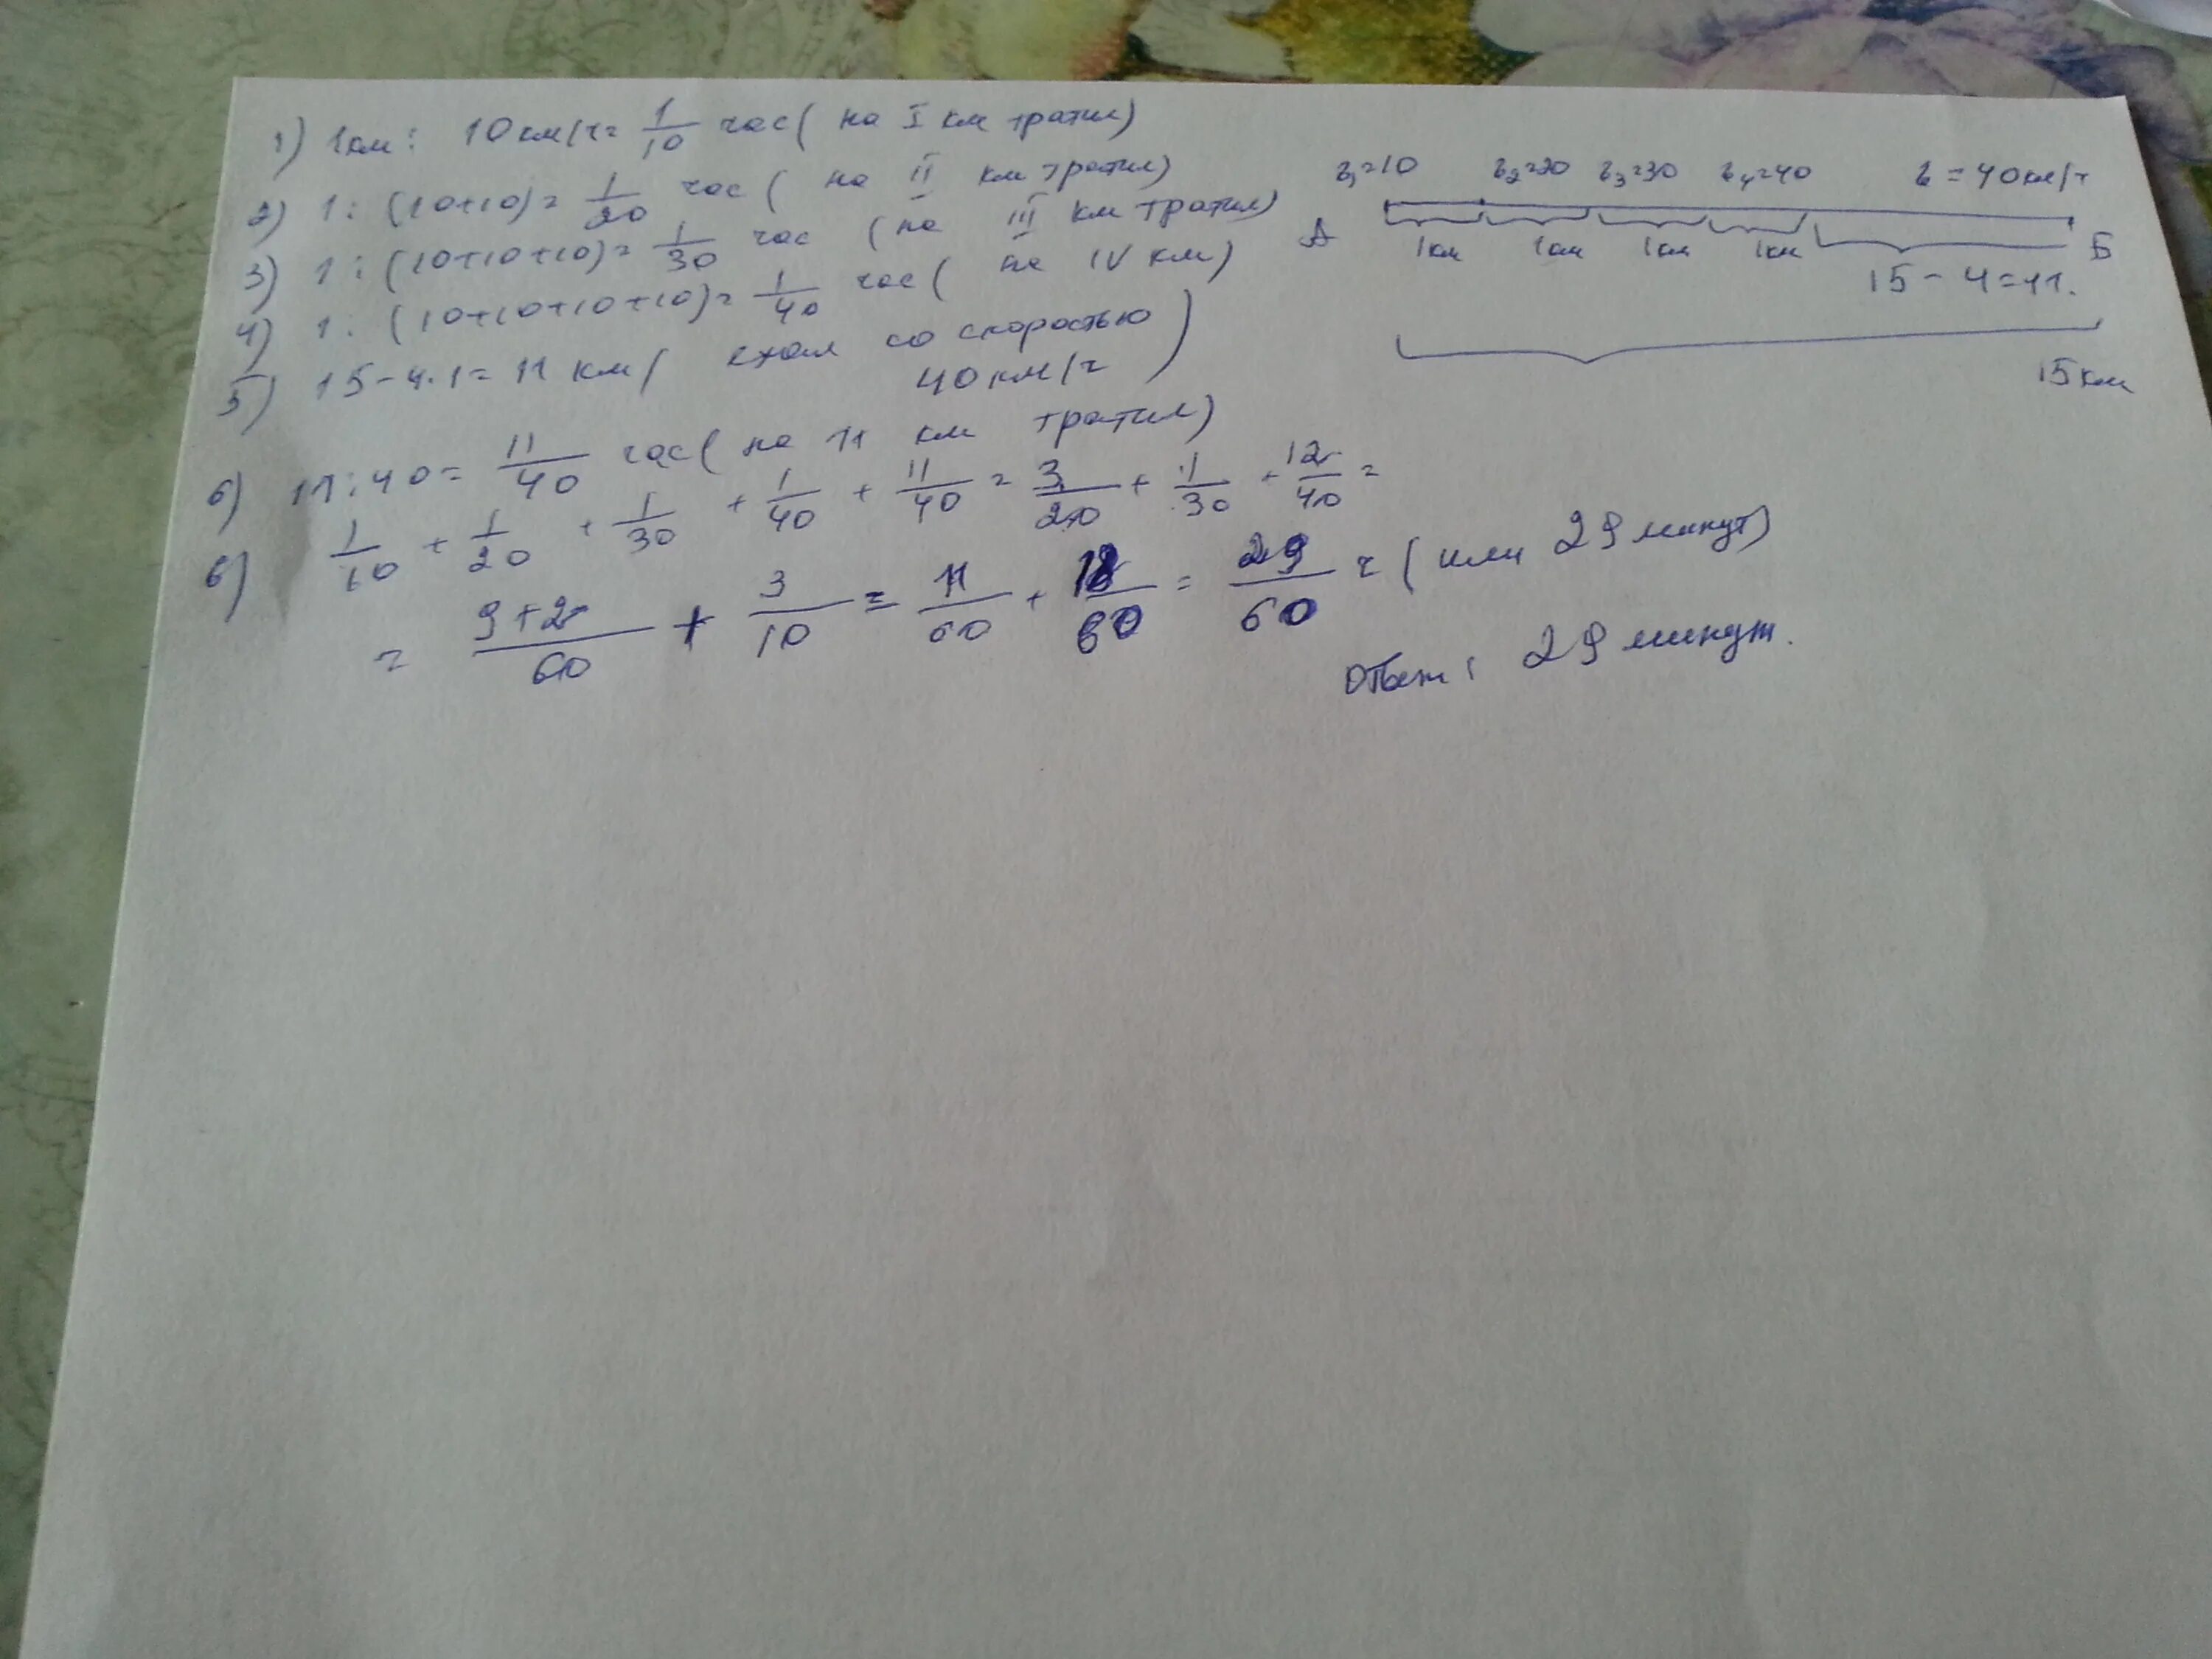 1) 1км : 10км/ч= 1/10 час( на I км тратил)
2) 1 : (10+10)= 1/20 час ( на II км тратил)
3) 1 : (10+10+10)= 1/30 час ( на III км тратил)
4) 1 : (10+10+10+10)= 1/40 час ( на IV км)
5) 15-4·1= 11 км( ехал со скоростью
40км/ч )
6) 11:40= 11/40 час( на 11 км тратил)
6) 1/10 + 1/20 + 1/30 + 1/40 + 11/40 = 3/20 + 1/30 + 12/40 =
= 9+2/60 + 3/10 = 11/60 + 18/60 = 29/60 ч ( или 29 минут)
Ответ: 29 минут.
v₁=10 v₂=20 v₃=30 v₄=40 v=40км/ч
А 1км 1км 1км 1км Б
15-4=11.
15км